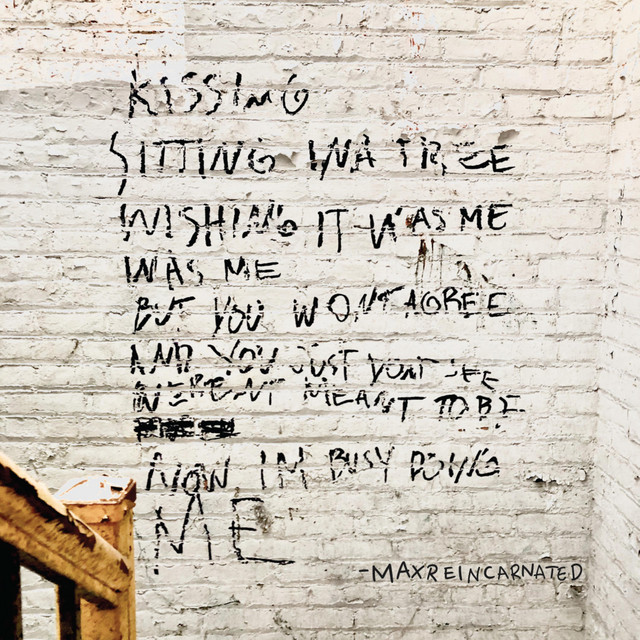 KISSING
SITTING IN A TREE
WISHING IT WAS ME
WAS ME
BUT YOU WONT AGREE
AND YOU JUST DONT SEE
WERENT MEANT TO BE
NOW IM BUSY DOING
ME
-MAXREINCARNATED